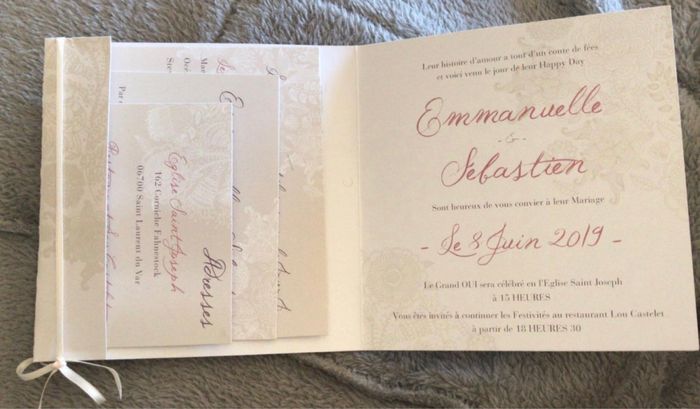 Leur histoire d'amour a tout d'un conte de fées
et voici venu le jour de leur Happy Day
Emmanuelle
- & -
Sébastien
Sont heureux de vous convier à leur Mariage
- Le 8 Juin 2019 -
Le Grand OUI sera célébré en l'Eglise Saint Joseph
à 15 HEURES
Vous êtes invités à continuer les Festivités au restaurant Lou Castelet
à partir de 18 HEURES 30
Adresses
Eglise Saint Joseph
162 Corniche Fahnestock
06700 Saint Laurent du Var